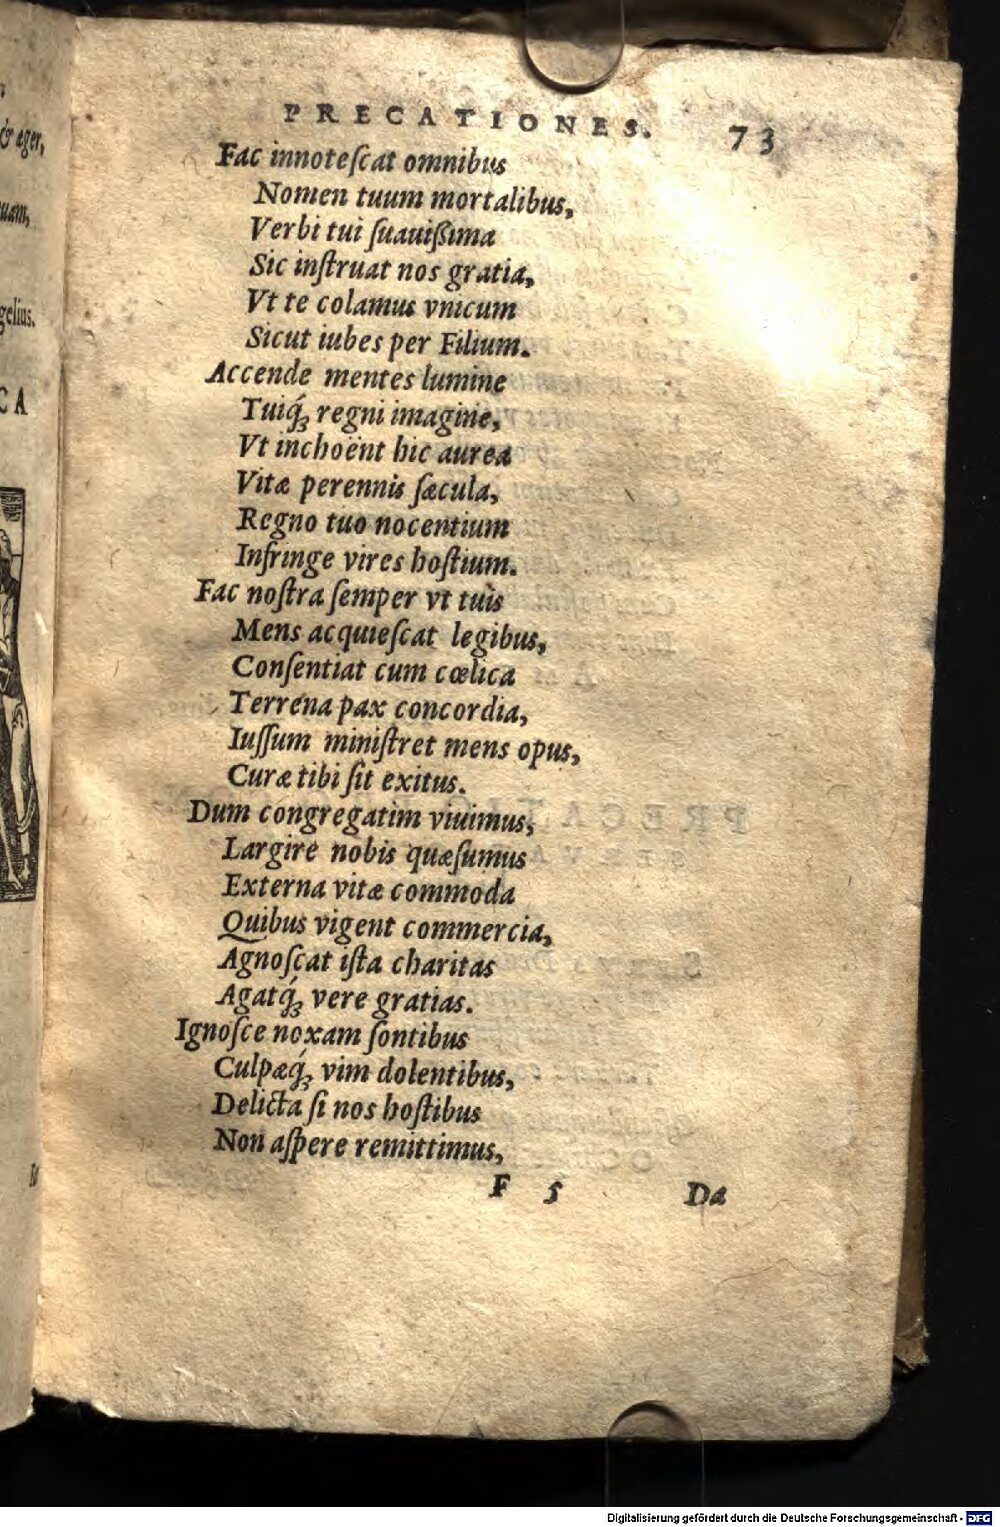 PRECATIONES. 73
Fac innoteſcat omnibus
Nomen tuum mortalibus,
Verbi tui ſuauißima
Sic inſtruat nos gratia,
Vt te colamus vnicum
Sicut iubes per Filium.
Accende mentes lumine
Tuiq́ꝫ regni imagine,
Vt inchoënt hic aurea
Vitæ perennis ſæcula,
Regno tuo nocentium
Infringe vires hoſtium.
Fac noſtra ſemper vt tuis
Mens acquieſcat legibus,
Conſentiat cum cœlica
Terrena pax concordia,
Iuſſum miniſtret mens opus,
Curæ tibi ſit exitus.
Dum congregatim viuimus,
Largire nobis quæſumus
Externa vitæ commoda
Quibus vigent commercia,
Agnoſcat iſta charitas
Agatq́ꝫ vere gratias.
Ignoſce noxam ſontibus
Culpæq́ꝫ vim dolentibus,
Delicta ſi nos hoſtibus
Non aſpere remittimus,
F 5 Da
& eger,
uam,
gelius.
CA
Digitalisierung gefördert durch die Deutsche Forschungsgemeinschaft - DFG